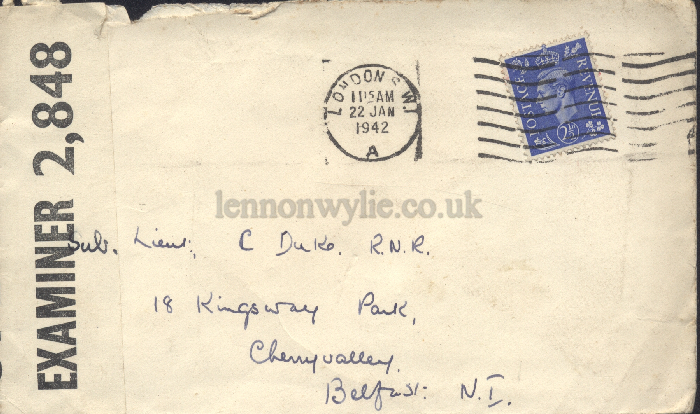 EXAMINER 2,848
LONDON S.W.1
11 15 AM
22 JAN
1942
A
POSTAGE REVENUE
2½D
lennonwylie.co.uk
Sub. Lieut: C Duke. R.N.R.
18 Kingsway Park,
Cherryvalley.
Belfast: N.I.